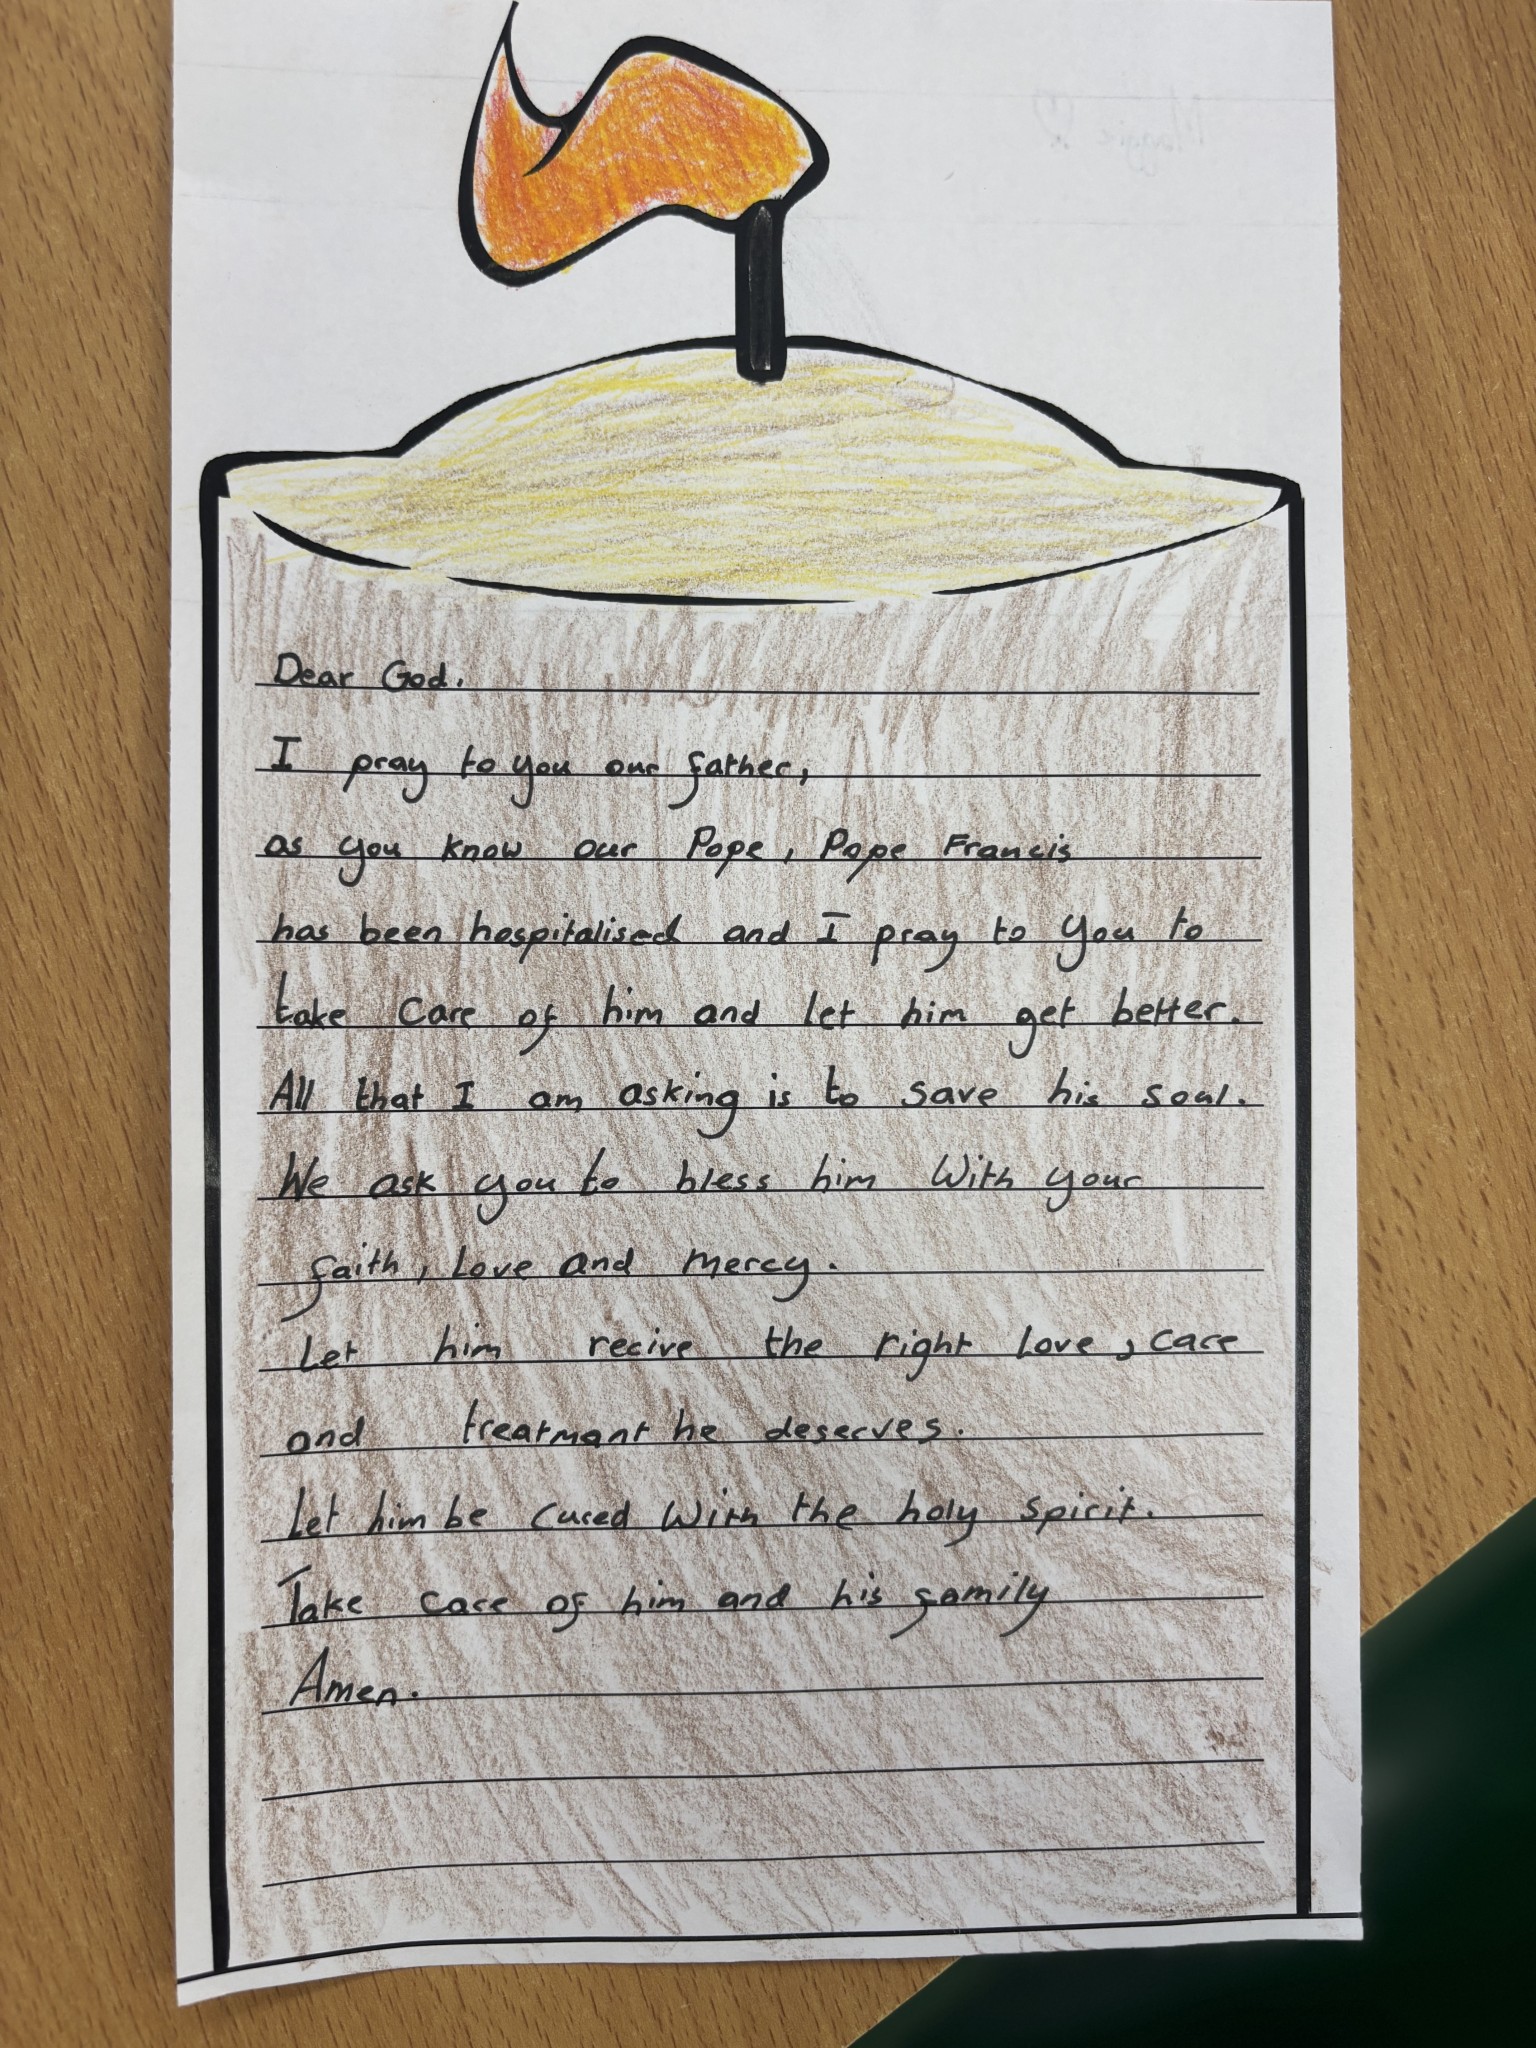 Maggie
Dear God.
I pray to you our father,
as you know our Pope, Pope Francis
has been hospitalised and I pray to you to
take care of him and let him get better.
All that I am asking is to save his soul.
We ask you to bless him With your
faith, love and mercy.
Let him recive the right love, care
and treatmant he deserves.
Let him be cured With the holy spirit.
Take care of him and his family
Amen.